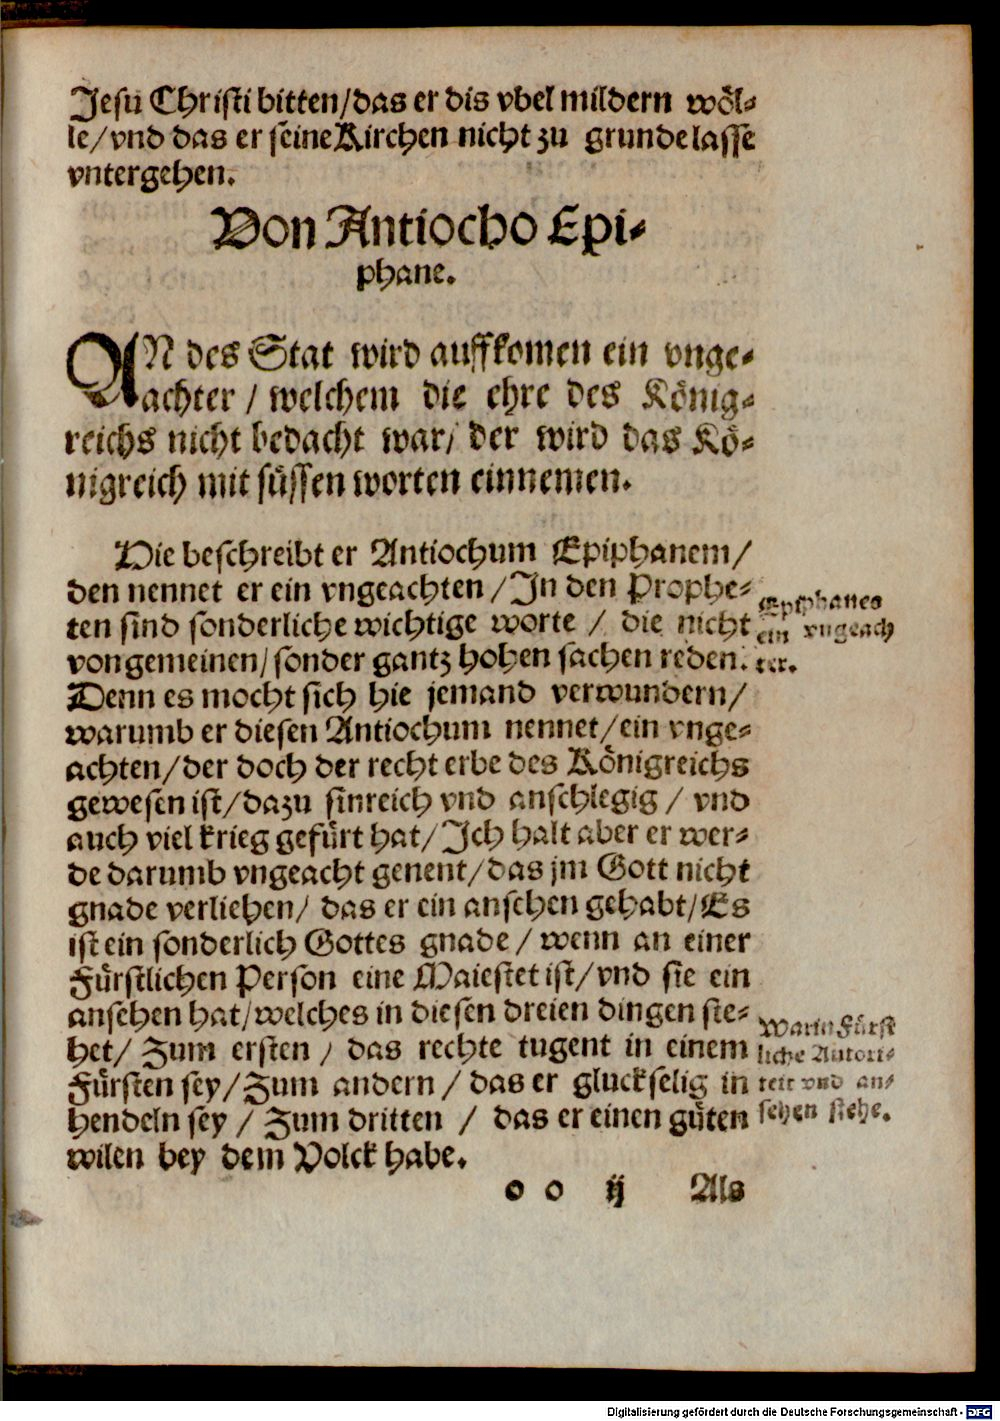 Jesu Christi bitten/das er dis vbel mildern wöl-
le/vnd das er seine Kirchen nicht zu grunde lasse
vntergehen.
Von Antiocho Epi-
phane.
AN des Stat wird auffkomen ein vnge-
achter / welchem die ehre des König-
reichs nicht bedacht war/ der wird das Kö-
nigreich mit süssen worten einnemen.
Hie beschreibt er Antiochum Epiphanem/
den nennet er ein vngeachten/In den Prophe-
ten sind sonderliche wichtige worte / die nicht
von gemeinen/sonder gantz hohen sachen reden.
Denn es mocht sich hie jemand verwundern/
warumb er diesen Antiochum nennet/ein vnge-
achten/der doch der recht erbe des Königreichs
gewesen ist/dazu sinreich vnd anschlegig / vnd
auch viel krieg gefürt hat/Ich halt aber er wer-
de darumb vngeacht genent/das jm Gott nicht
gnade verliehen/ das er ein ansehen gehabt/Es
ist ein sonderlich Gottes gnade / wenn an einer
Fürstlichen Person eine Maiestet ist/vnd sie ein
ansehen hat/welches in diesen dreien dingen ste-
het/ Zum ersten / das rechte tugent in einem
Fürsten sey/Zum andern / das er gluckselig in
hendeln sey / Zum dritten / das er einen güten
wilen bey dem Volck habe.
Epiphanes
ein vngeach
ter.
Warin Fürst
liche Autori-
teit vnd an-
sehen stehe.
o o ij Als
Digitalisierung gefördert durch die Deutsche Forschungsgemeinschaft - DFG